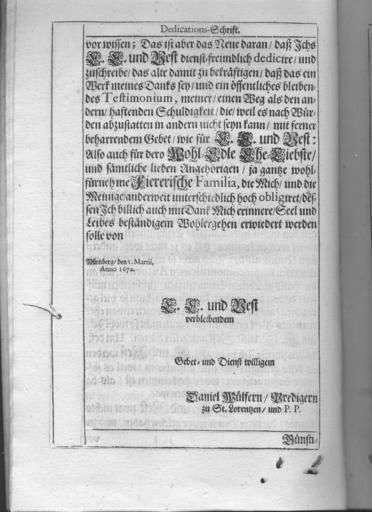 Dedications-Schrift.
vor wissen; Das ist aber das Neue daran/ daß Ichs
E. E. und Vest dienst-freundlich dedicire/ und
zuschreibe/ das alte damit zu bekräftigen/ daß das ein
Werk meines Danks sey/ und ein öffentliches bleiben-
des Testimonium, meiner/ einen Weg als den an-
dern/ haftenden Schuldigkeit/ die/ weil es nach Wür-
den abzustatten in andern nicht seyn kann/ mit ferner
beharrendem Gebet/ wie für E. E. und Vest:
Also auch für dero Wohl-Edle Ehe-Liebste/
und sämtliche lieben Angehörigen/ ja gantze wohl-
fürnehme Fiererische Familia, die Mich/ und die
Meinige/ anderweit unterschiedlich hoch obligiret/ des-
sen Ich billich auch mit Dank Mich erinnere/ Seel und
Leibes beständigem Wohlergehen erwiedert werden
solle von
Nürnberg/ den 1. Martii,
Anno 1672.
E. E. und Vest
verbleibendem
Gebet- und Dienst willigem
Daniel Wülfern/ Predigern
zu St. Lorentzen/ und P. P.
Günsti-